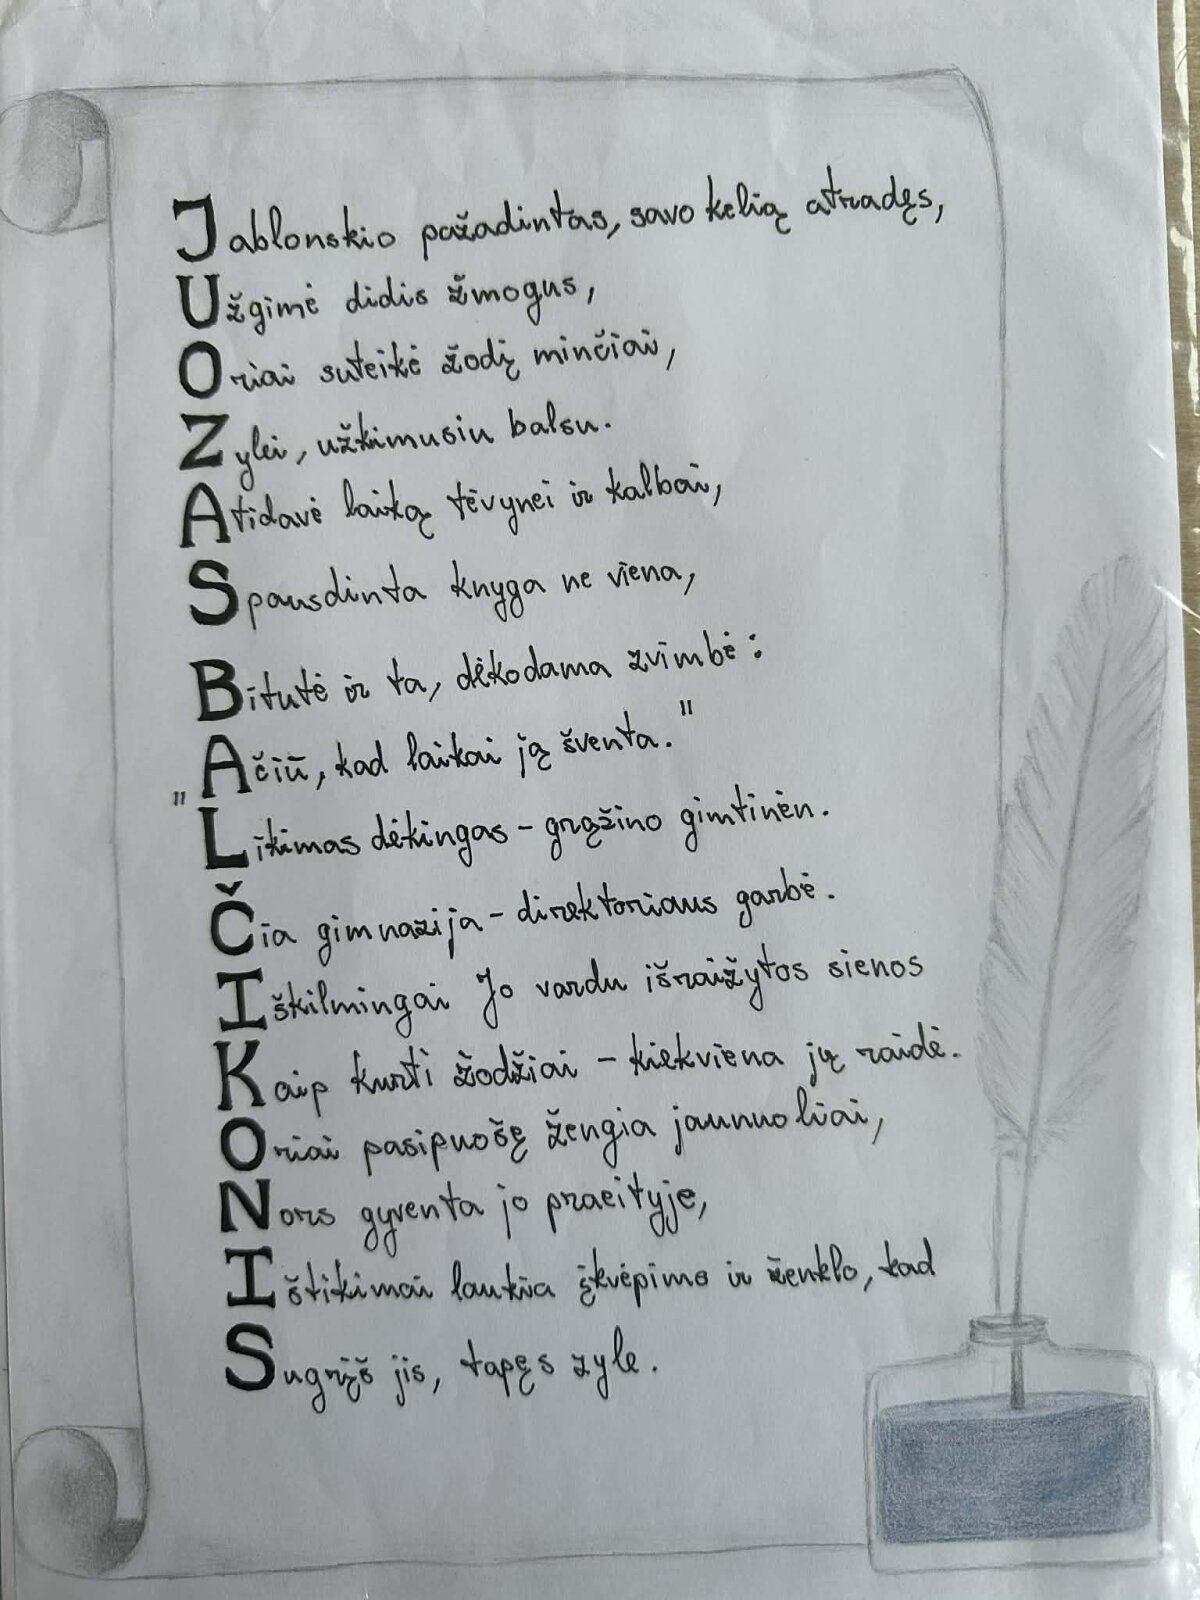 Jablonskio pažadintas, savo kelią atradęs,
Užgimė didis žmogus,
Oriai suteikė žodį minčiai,
Zylei, užkimusiu balsu.
Atidavė laiką tėvynei ir kalbai,
Spausdinta knyga ne viena,
Bitutė ir ta, dėkodama zvimbė:
"Ačiū, kad laikai ją šventa."
Likimas dėkingas - grąžino gimtinėn.
Čia gimnazija - direktoriaus garbė.
Iškilmingai Jo vardu išraižytos sienos
Kaip kurti žodžiai - kiekviena jų raidė.
Oriai pasipuošę žengia jaunuoliai,
Nors gyventa jo praeityje,
Ištikimai laukia įkvėpimo ir ženklo, kad
Sugrįš jis, tapęs zyle.